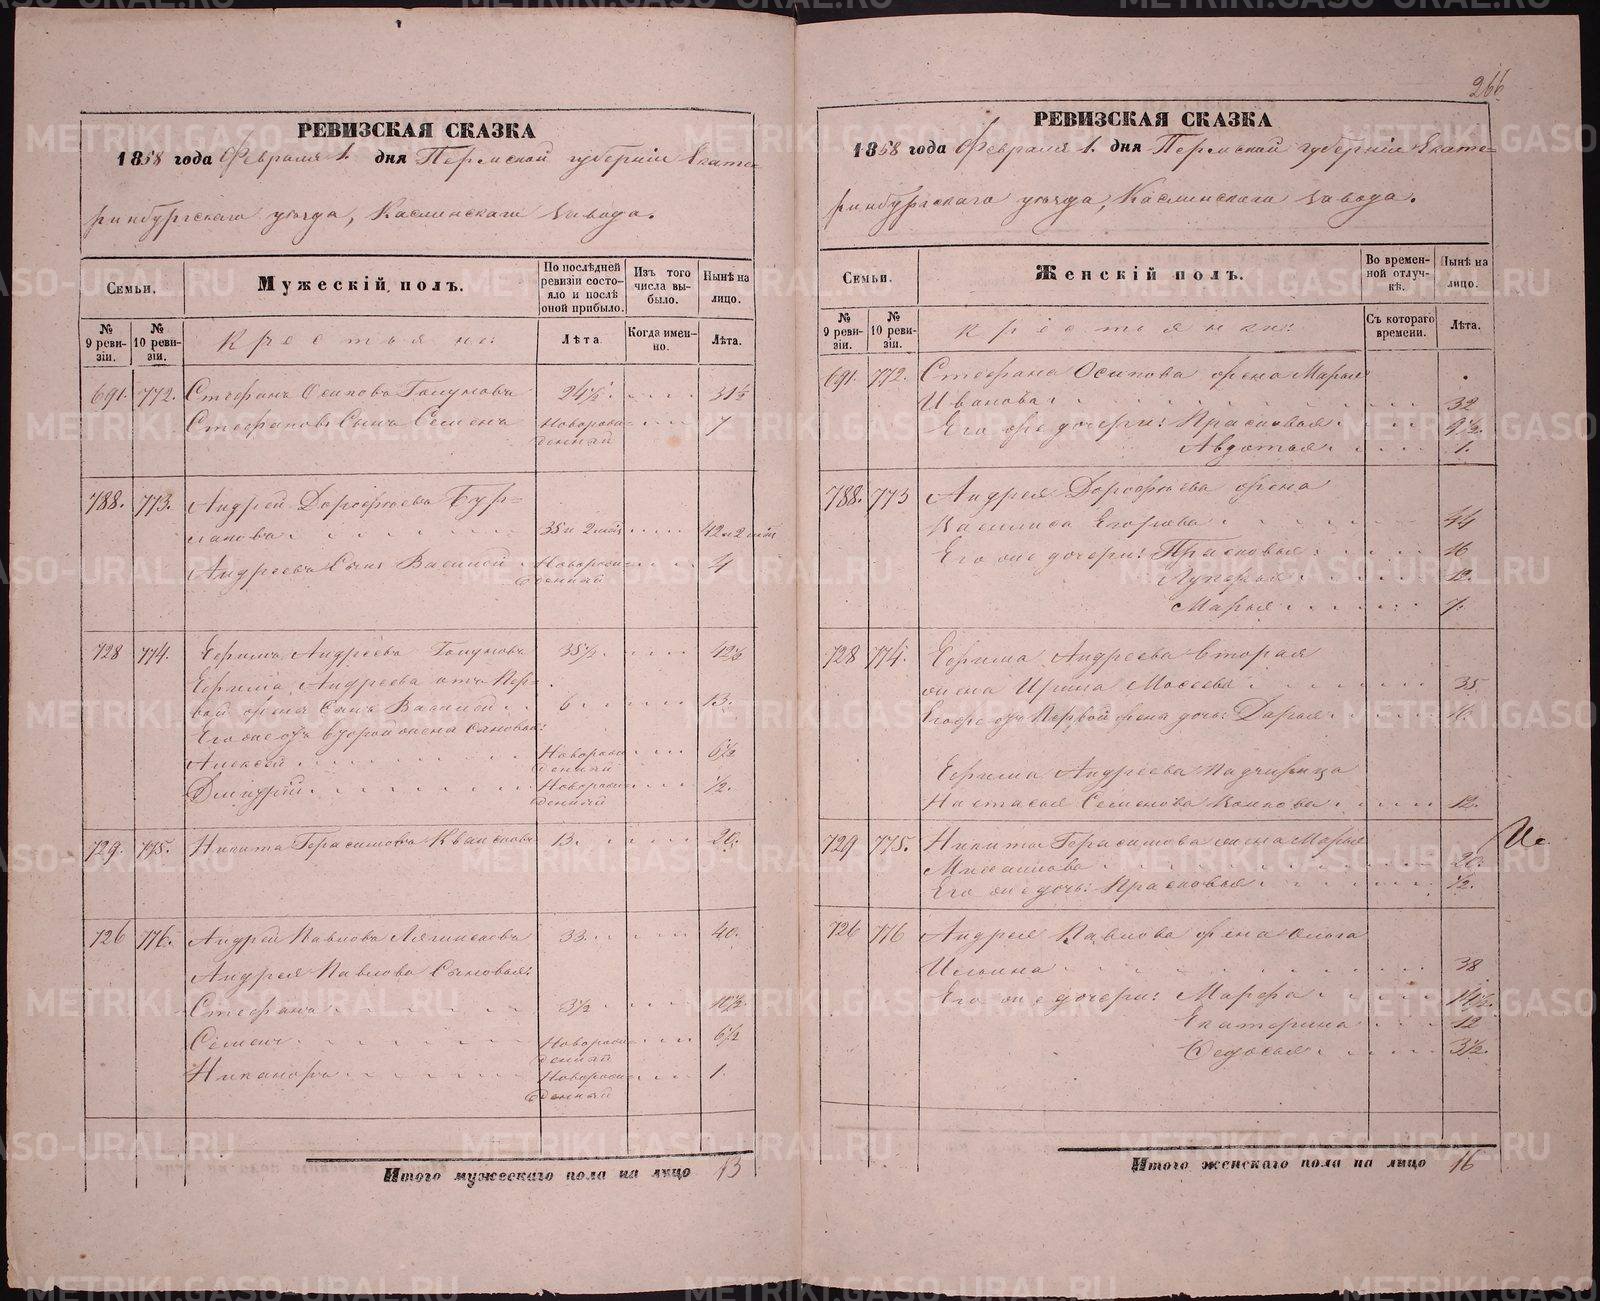 266
РЕВИЗСКАЯ СКАЗКА
1858 года Февраля 1. дня Пермской губерніи Екате-
ринбургскаго уѣзда, Каслинскаго завода.
Семьи.
Мужескій полъ.
По послѣдней ревизіи состояло и послѣ оной прибыло.
Изъ того числа выбыло.
Нынѣ на лицо.
№ 9 ревизіи.
№ 10 ревизіи.
Крестьяне:
Лѣта
Когда именно.
Лѣта.
691. 772. Стефанъ Осиповъ Голуновъ 24½ 31½
Стефановъ Сынъ Семенъ Новорожденный 7
788. 773. Андрей Дорофѣевъ Бур-
лаковъ 35 и 2 мѣс 42 и 2 мѣс
Андреевъ Сынъ Василей Новорожденный 4
728 774. Ефимъ Андреевъ Голуновъ 35½ 42½
Ефима Андреева отъ Пер-
вой жены Сынъ Василей 6 13.
Его же отъ второй жены сыновья:
Алексей Новорожденный 6½
Дмитрій Новорожденный ½.
729. 775. Никита Герасимовъ 13. 20.
726 776. Андрей Павловъ 33. 40.
Андрея Павлова Сыновья:
Стефанъ 3½ 10½
Семенъ Новорожденный 6½
Никаноръ Новорожденный 1.
Итого мужескаго пола на лицо 13
РЕВИЗСКАЯ СКАЗКА
1858 года Февраля 1. дня Пермской губерніи Екате-
ринбургскаго уѣзда, Каслинскаго завода.
Семьи.
Женскій полъ.
Во временной отлучкѣ.
Нынѣ на лицо.
№ 9 ревизіи.
№ 10 ревизіи.
Крестьянки:
Съ котораго времени.
Лѣта.
691. 772. Стефана Осипова жена Марья
Иванова 32
Его же дочери: Прасковья 9½.
Авдотья 1.
788. 773 Андрея Дорофѣева жена
Василиса Егорова 44
Его же дочери: Прасковья 16
Лукерья 12.
Марья 7.
728 774. Ефима Андреева вторая
жена Ирина Мосеева 35
Его же отъ Первой жены дочь: Дарья
Ефима Андреева Падчерица
Настасья Семенова 12.
729 775. Никиты Герасимова жена Марья
Михайлова 20.
Его же дочь: Прасковья ½.
726 776 Андрея Павлова жена Ольга
Ильина 38
Его же дочери: Марфа 14½.
Екатерина 12
Федосья 3½.
Итого женскаго пола на лицо 16
METRIKI.GASO-URAL.RU